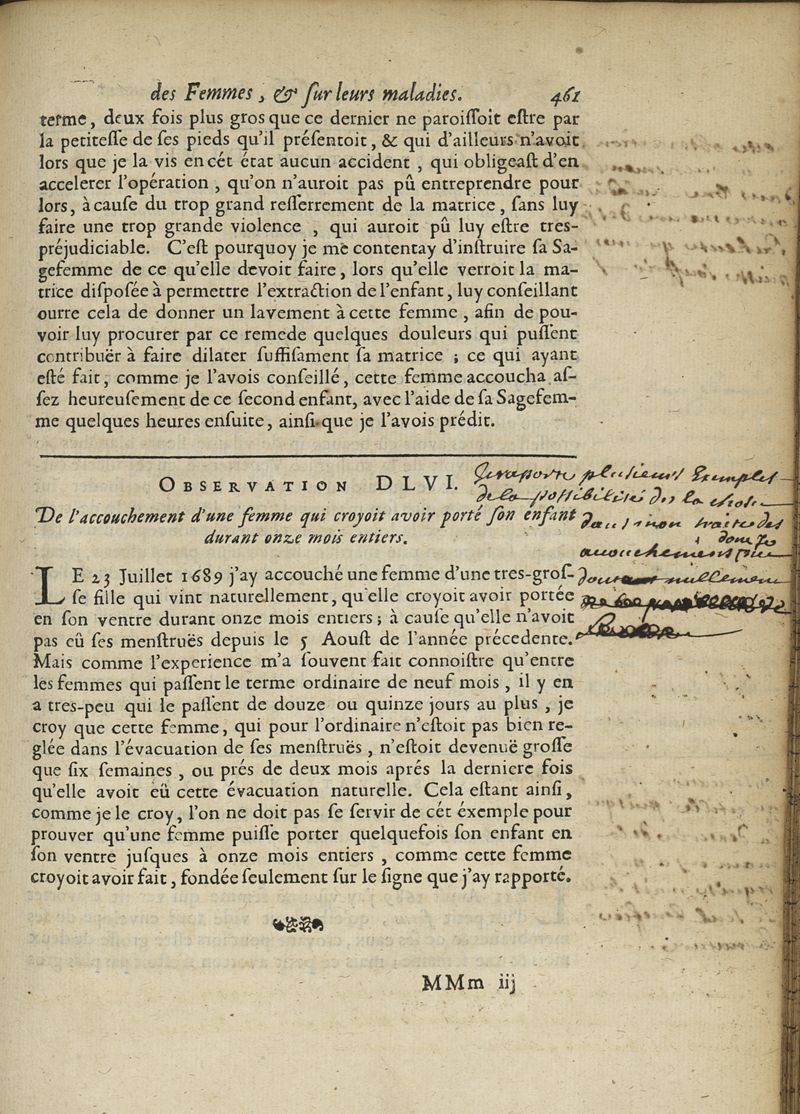 des Femmes, & ſur leurs maladies. 461
terme, deux fois plus gros que ce dernier ne paroiſſoit eſtre par
la petiteſſe de ſes pieds qu'il préſentoit, & qui d'ailleurs n'avoit
lors que je la vis en cét état aucun accident, qui obligeaſt d'en
accelerer l'opération, qu'on n'auroit pas pû entreprendre pour
lors, à cauſe du trop grand reſſerrement de la matrice, ſans luy
faire une trop grande violence, qui auroit pû luy eſtre tres-
préjudiciable. C'eſt pourquoy je me contentay d'inſtruire ſa Sa-
gefemme de ce qu'elle devoit faire, lors qu'elle verroit la ma-
trice diſpoſée à permettre l'extraction de l'enfant, luy conſeillant
outre cela de donner un lavement à cette femme, afin de pou-
voir luy procurer par ce remede quelques douleurs qui puſſent
contribuër à faire dilater ſuffiſament ſa matrice ; ce qui ayant
eſté fait, comme je l'avois conſeillé, cette femme accoucha aſ-
ſez heureuſement de ce ſecond enfant, avec l'aide de ſa Sagefem-
me quelques heures enſuite, ainſi que je l'avois prédit.
OBSERVATION DLVI.
De l'accouchement d'une femme qui croyoit avoir porté ſon enfant
durant onze mois entiers.
LE 23 Juillet 1689 j'ay accouché une femme d'une tres-groſ-
ſe fille qui vint naturellement, qu'elle croyoit avoir portée
en ſon ventre durant onze mois entiers ; à cauſe qu'elle n'avoit
pas eû ſes menſtruës depuis le 5 Aouſt de l'année précedente.
Mais comme l'experience m'a ſouvent fait connoiſtre qu'entre
les femmes qui paſſent le terme ordinaire de neuf mois, il y en
a tres-peu qui le paſſent de douze ou quinze jours au plus, je
croy que cette femme, qui pour l'ordinaire n'eſtoit pas bien re-
glée dans l'évacuation de ſes menſtruës, n'eſtoit devenuë groſſe
que ſix ſemaines, ou prés de deux mois aprés la derniere fois
qu'elle avoit eû cette évacuation naturelle. Cela eſtant ainſi,
comme je le croy, l'on ne doit pas ſe ſervir de cét éxemple pour
prouver qu'une femme puiſſe porter quelquefois ſon enfant en
ſon ventre juſques à onze mois entiers, comme cette femme
croyoit avoir fait, fondée ſeulement ſur le ſigne que j'ay rapporté.
MMm iij